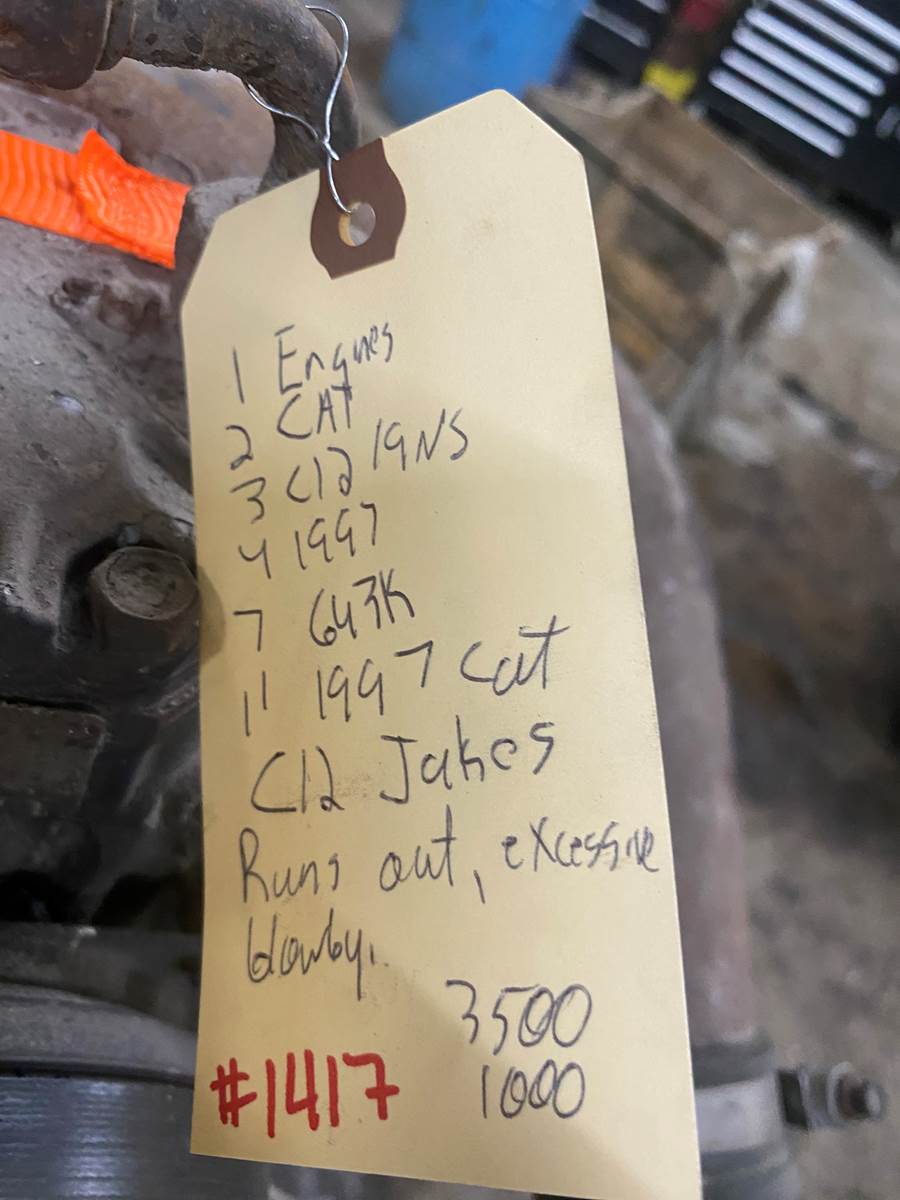 1 Engines
2 CAT
3 C12 19NS
4 1997
7 643K
11 1997 Cat
C12 Jakes
Runs out, excessive
blowby.
3500
#1417 1000